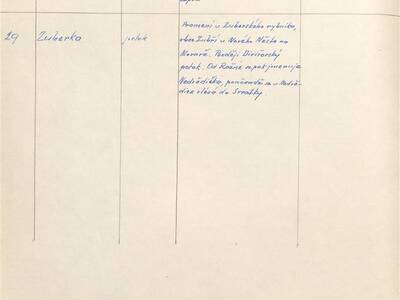 29 Zuberka potok Pramení u Zuberského rybníka,
obce Zubří u Nového Města na
Moravě. Později Divišovský
potok. Od Rožné se pak jmenuje
Nedvědička, poněvadž se u Nedvě-
dice vlévá do Svratky